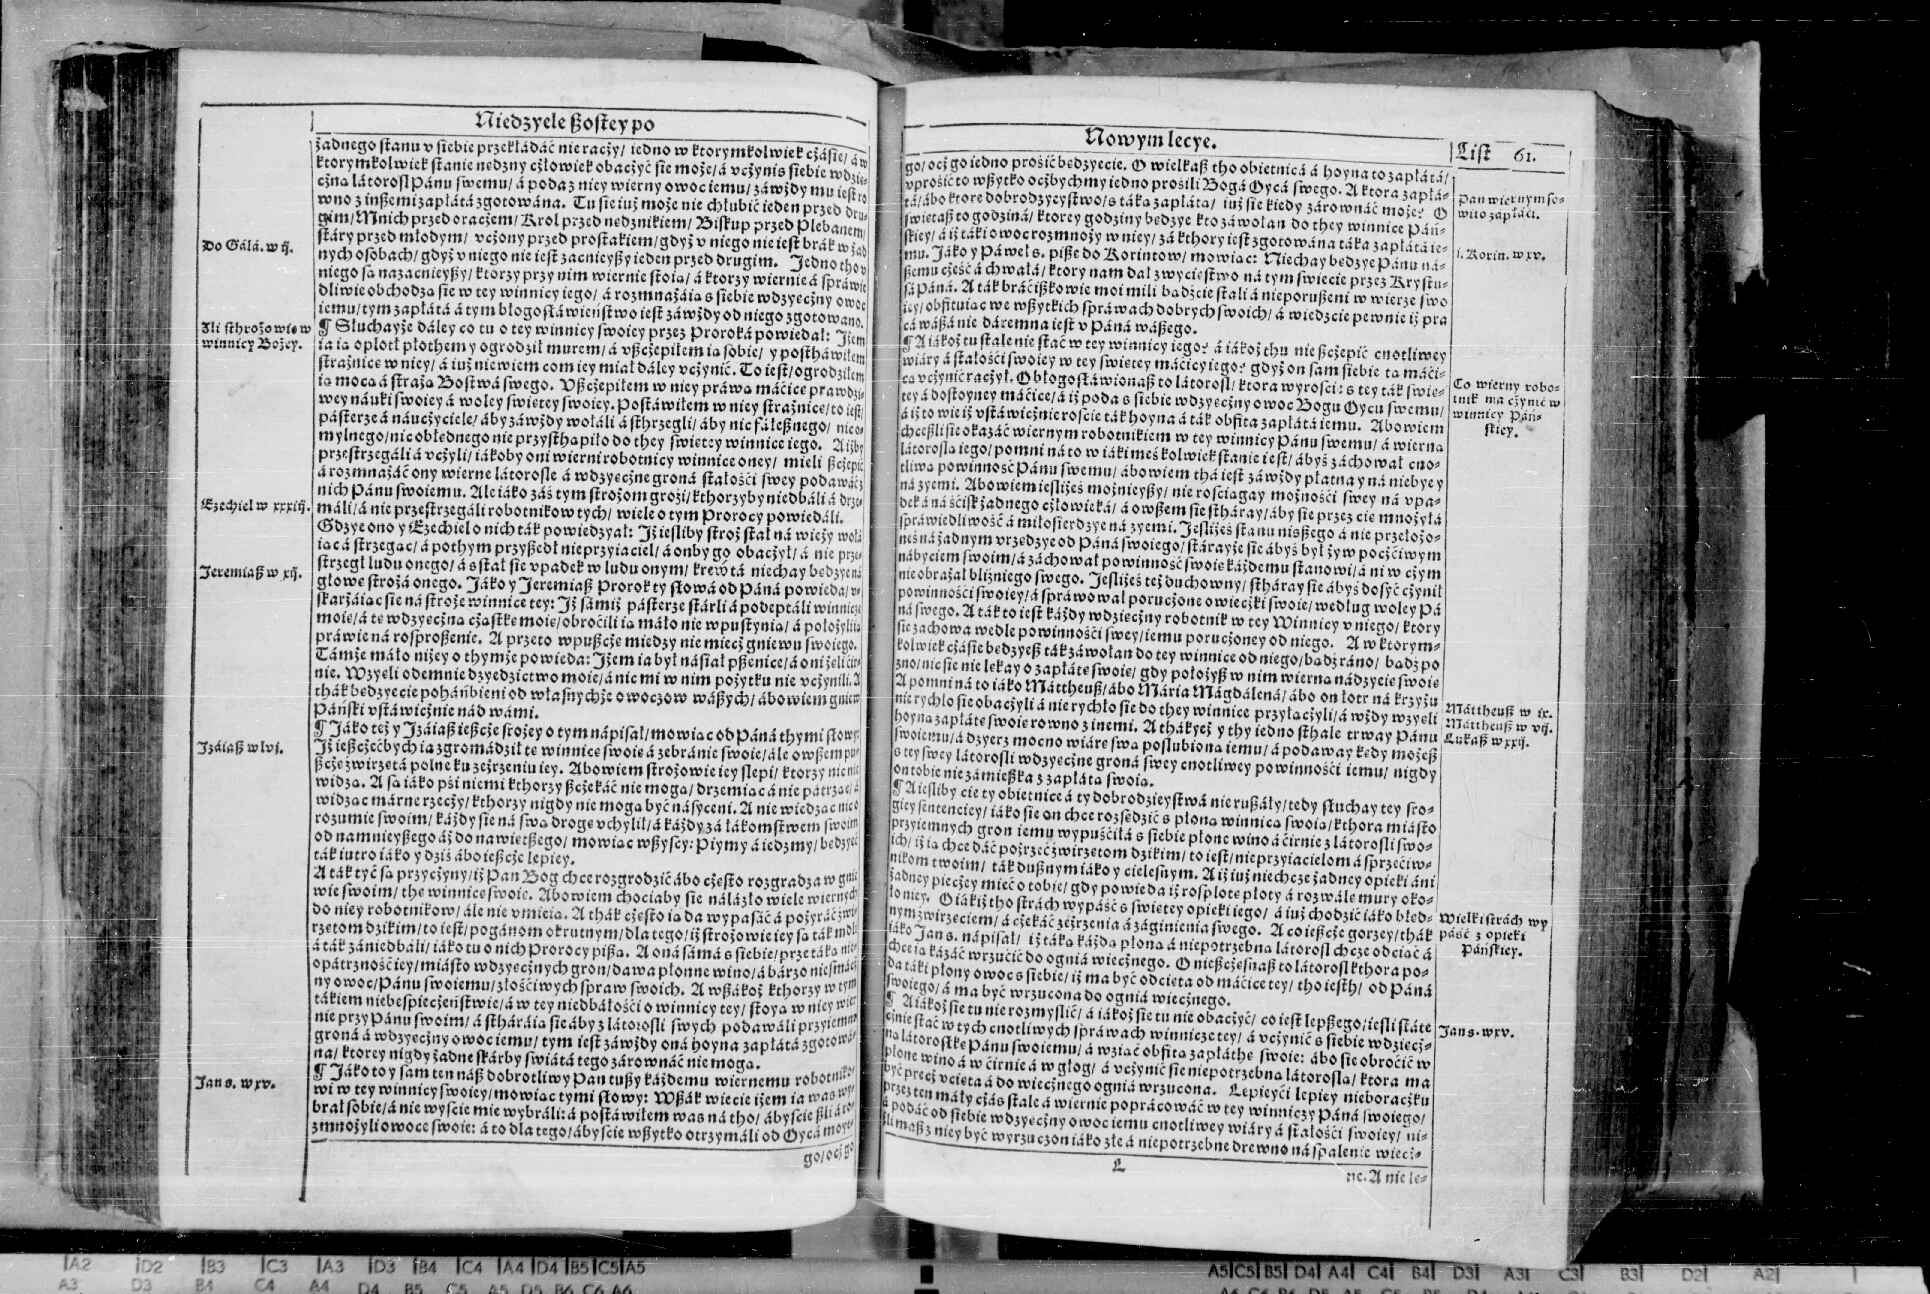 Niedzyele ßostey po
żadnego stanu v siebie przekładáć nie racży/ iedno w ktorymkolwiek cżásie/ á w
ktorymkolwiek stanie nedzny cżłowiek obacżyć sie może/ á vcżynis siebie wdzie-
cżna látorosl Pánu swemu/ á poda z niey wierny owoc iemu/ záwżdy mu iest ro
wno z inßemi zapłátá zgotowána. Tu sie iuż może nie chlubić ieden przed dru-
gim/ Mnich przed oracżem/ Krol przed nedznikiem/ Biskup przed Plebanem/
stáry przed młodym/ vcżony przed prostakiem/ gdyż v niego nie iest brák w żad
nych osobach/ gdyż v niego nie iest zacnieyßy ieden przed drugim. Jedno tho v
niego sa nazacnieyßy/ ktorzy przy nim wiernie stoia/ á ktorzy wiernie á spráwie
dliwie obchodza sie w tey winnicy iego/ á rozmnażáia s siebie wdzyecżny owoc
iemu/ tym zapłátá á tym błogosłáwieństwo iest záwżdy od niego zgotowáno.
¶ Słuchayże dáley co tu o tey winnicy swoiey przez Proroká powiedał: Jżem
ia ia oplotł płothem y ogrodził murem/ á vßcżepiłem ia sobie/ y posthawiłem
strażnice w niey/ á iuż niewiem com iey miał dáley vcżynić. To iest/ ogrodziłem
ia moca á straża Bostwá swego. Vßcżepiłem w niey práwa máćice prawdzi-
wey náuki swoiey á woley swietey swoiey. Postáwiłem w niey strażnice/ to iest/
pásterze á náucżyciele/ áby záwżdy woláli á sthrzegli/ áby nic fáleßnego/ nieo-
mylnego/ nic obłednego nie przysthapiło do they swietey winnice iego. A iżby
przestrzegáli á vcżyli/ iákoby oni wierni robotnicy winnice oney/ mieli ßcżepić
á rozmnażáć ony wierne látorosle á wdzyecżne groná stałośći swey podawáć z
nich Pánu swoiemu. Ale iáko záś tym strożom groźi/ kthorzyby niedbáli á drze-
máli/ á nie przestrzegáli robotnikow tych/ wiele o tym Prorocy powiedáli.
Gdzye ono y Ezechiel o nich ták powiedzyał: Jż iesliby stroż stał ná wieży woła
iac á strzegac/ á pothym przyßedł nieprzyiaciel/ á onby go obacżył/ á nie prze-
strzegł ludu onego/ á sstał sie vpadek w ludu onym/ krew tá niechay bedzye ná
głowe strożá onego. Jáko y Jeremiaß Prorok ty słowá od Páná powieda/ v-
skarżáiac sie ná stroże winnice tey: Jż sámiż pásterze stárli á podeptáli winnice
moie/ á te wdzyecżna cżastke moie/ obroćili ia máło nie w pustynia/ á położyli ia
práwie ná rosproßenie. A przeto wpußcże miedzy nie miecż gniewu swoiego.
Támże máło niżey o thymże powieda: Jżem ia był násiał pßenice/ á oni żeli cir-
nie. Wzyeli odemnie dzyedzictwo moie/ á nic mi w nim pożytku nie vcżynili. A
thák bedzyecie poháńbieni od własnychże owoczow wáßych/ ábowiem gniew
Páński vstáwicżnie nád wámi.
¶ Jáko też y Jzáiaß ießcże srożey o tym nápisał/ mowiac od Páná thymi słowy:
Jż ießcżećbych ia zgromádził te winnice swoie á zebránie swoie/ ále owßem pu-
ßcże zwirzetá polne ku zeżrzeniu iey. Abowiem strożowie iey slepi/ ktorzy nic nie
widza. A sa iáko pśi niemi kthorzy ßcżekáć nie moga/ drzemiac á nie pátrzac/ á
widzac márne rzecży/ kthorzy nigdy nie moga być násyceni. A nie wiedzac nic o
rozumie swoim/ káżdy sie ná swa droge vchylił/ á káżdy zá łákomstwem swoim
od namnieyßego áż do nawietßego/ mowiac wßyscy: Piymy á iedzmy/ bedzyeć
ták iutro iáko y dziś ábo ießcże lepiey.
A ták tyć sa przycżyny/ iż Pan Bog chce rozgrodzić ábo cżesto rozgradza w gnie
wie swoim/ the winnice swoie. Abowiem choćiaby sie nálázło wiele wiernych
do niey robotnikow/ ále nie vmieia. A thák cżesto ia da wypásáć á pożyráć zwi-
rzetom dzikim/ to iest/ pogánom okrutnym/ dla tego/ iż strożowie iey sa ták mdli
á ták zániedbáli/ iáko tu o nich Prorocy pißa. A oná sámá s siebie/ prze táka nie-
opátrzność iey/ miásto wdzyecżnych gron/ dawa płonne wino/ á bárzo niesmácż
ny owoc/ Pánu swoiemu/ złośćiwych spraw swoich. A wßákoż kthorzy w tym
tákiem niebespiecżeństwie/ á w tey niedbáłośći o winnicy tey/ stoya w niey wier
nie przy Pánu swoim/ á stháráia sie áby z látorosli swych podawáli przyiemne
groná á wdzyecżny owoc iemu/ tym iest záwżdy oná hoyna zapłátá zgotowá-
ná/ ktorey nigdy żadne skárby swiátá tego zárownáć nie moga.
¶ Jáko to y sam ten náß dobrotliwy Pan tußy káżdemu wiernemu robotniko-
wi w tey winnicy swoiey/ mowiac tymi słowy: Wßák wiecie iżem ia was wy-
brał sobie/ á nie wyscie mie wybráli: á postáwiłem was ná tho/ ábyscie ßli á ro-
zmnożyli owoce swoie: á to dla tego/ ábyscie wßytko otrzymáli od Oycá moye-
go/ ocż go
Do Gálá. w ij.
Zli sthrożowie w
winnicy Bożey.
Ezechiel w xxxiij.
Jeremiaß w xij.
Jzáiaß w lvj.
Jan s. w xv.
Nowym lecye.
List 61.
go/ ocż go iedno prosić bedzyecie. O wielkaß tho obietnicá á hoyna to zapłátá/
vprosić to wßytko ocżbychmy iedno prosili Bogá Oycá swego. A ktora zapłá-
tá/ ábo ktore dobrodzyeystwo/ s táka zapłáta/ iuż sie kiedy zárownáć może? O
swietaß to godziná/ ktorey godziny bedzye kto záwołan do they winnice Páń-
skiey/ á iż táki owoc rozmnoży w niey/ zá kthory iest zgotowána táka zapłátá ie-
mu. Jáko y Páweł s. piße do Korintow/ mowiac: Niechay bedzye Pánu ná-
ßemu cżeść á chwałá/ ktory nam dał zwyciestwo ná tym swiecie przez Krystu-
sá Páná. A ták bráćißkowie moi mili badzcie stali á nieporußeni w wierze swo
iey/ obfituiac we wßytkich spráwach dobrych swoich/ á wiedzcie pewnie iż pra
cá wáßá nie dáremna iest v Páná wáßego.
¶ A iákoż tu stale nie stać w tey winnicy iego? á iákoż thu nie ßcżepić cnotliwey
wiáry á stałośći swoiey w tey swietey máćicy iego? gdyż on sam siebie ta máći-
ca vcżynić racżył. O błogosłáwionaß to látorosl/ ktora wyrosci: s tey ták swie-
tey á dostoyney máćice/ á iż poda s siebie wdzyecżny owoc Bogu Oycu swemu/
á iż to wie iż vstáwicżnie roscie ták hoyna á ták obfita zapłátá iemu. Abowiem
chceßli sie okazáć wiernym robotnikiem w tey winnicy Pánu swemu/ á wierna
látorosla iego/ pomni ná to w iákimeś kolwiek stanie iest/ ábyś záchował cno-
tliwa powinność Pánu swemu/ ábowiem thá iest záwżdy płatna y ná niebye y
ná zyemi. Abowiem iesliżeś możnieyßy/ nie rosciagay możnośći swey ná vpa-
dek á ná ścisk żadnego cżłowieká/ á owßem sie stháray/ áby sie przez cie mnożyłá
spráwiedliwość á miłosierdzye ná zyemi. Jesliżeś stanu nißßego á nie przełożo-
neś ná żadnym vrzedzye od Páná swoiego/ stárayże sie ábyś był żyw pocżćiwym
nábyciem swoim/ á záchował powinność swoie káżdemu stanowi/ á ni w cżym
nie obrażał bliźniego swego. Jesliżeś też duchowny/ stháray sie ábyś dosyć cżynił
powinnośći swoiey/ á spráwował porucżone owiecżki swoie/ według woley Pá
ná swego. A ták to iest káżdy wdziecżny robotnik w tey Winnicy v niego/ ktory
sie záchowa wedle powinnośći swey/ iemu porucżoney od niego. A w ktorym-
kolwiek cżásie bedzyeß ták záwołan do tey winnice od niego/ badź ráno/ badź po
zno/ nic sie nie lekay o zapłáte swoie/ gdy położyß w nim wierna nádzyeie swoie
A pomni ná to iáko Máttheuß/ ábo Mária Mágdálená/ ábo on łotr ná krzyżu
nie rychło sie obacżyli á nie rychło sie do they winnice przyłacżyli/ á wżdy wzyeli
hoyna zapłáte swoie rowno z inemi. A thákyeż y thy iedno sthale trway Pánu
swoiemu/ á dzyerż mocno wiáre swa poslubiona iemu/ á podaway kedy możeß
s tey swey látorosli wdzyecżne groná swey cnotliwey powinnośći iemu/ nigdy
on tobie nie zámießka z zapłáta swoia.
¶ A iesliby cie ty obietnice á ty dobrodzieystwá nie rußáły/ tedy słuchay tey sro-
giey sentenciey/ iáko sie on chce rozsedzić s płona winnica swoia/ kthora miásto
przyiemnych gron iemu wypuściłá s siebie płone wino á ćirnie z látorosli swo-
ich/ iż ia chce dáć pożrzeć zwirzetom dzikim/ to iest/ nieprzyiacielom á sprzećiw-
nikom twoim/ ták dußnym iáko y cielesnym. A iż iuż niechce żadney opieki áni
żadney piecżey mieć o tobie/ gdy powieda iż rosplote płoty á rozwale mury oko-
ło niey. O iákiż tho strách wypáść s swietey opieki iego/ á iuż chodzić iáko błed-
nym zwirzeciem/ á cżekáć zeżrzenia á záginienia swego. A co ießcże gorzey/ thák
iáko Jan s. nápisał/ iż táka káżda płona á niepotrzebna látorosl chce odciać á
chce ia kázáć wrzućić do ogniá wiecżnego. O nießcżesnaß to látorosl kthora po-
da táki płony owoc s siebie/ iż ma być odcieta od máćice tey/ tho iesth/ od Páná
swoiego/ á ma być wrzucona do ogniá wiecżnego.
¶ A iákoż sie tu nie rozmyslić/ á iákoż sie tu nie obacżyć/ co iest lepßego/ iesli státe
cżnie stać w tych cnotliwych spráwach winnicze tey/ á vcżynić s siebie wdziecż-
na látorostke Pánu swoiemu/ á wziać obfita zapláthe swoie: ábo sie obroćić w
płone wino á w ćirnie á w głog/ á vcżynić sie niepotrzebna látorosla/ ktora ma
być precż vcieta á do wiecżnego ogniá wrzucona. Lepieyći lepiey nieboracżku
przez ten máły cżás stale á wiernie popráćowáć w tey winniczy Páná swoiego/
á podáć od siebie wdzyecżny owoc iemu cnotliwey wiáry á stałośći swoiey/ ni-
żli maß z niey być wyrzucżon iáko złe á niepotrzebne drewno ná spalenie wiecż-
L
ne. A nie le-
Pan wiernym so-
wito zapłáći.
i. Korin. w xv.
Co wierny robo-
tnik ma cżynić w
winnicy Páń-
skiey.
Máttheuß w ix.
Máttheuß w vij.
Lukaß w xxij.
Wielki strách wy
páść z opieki
Páńskiey.
Jan s. w xv.